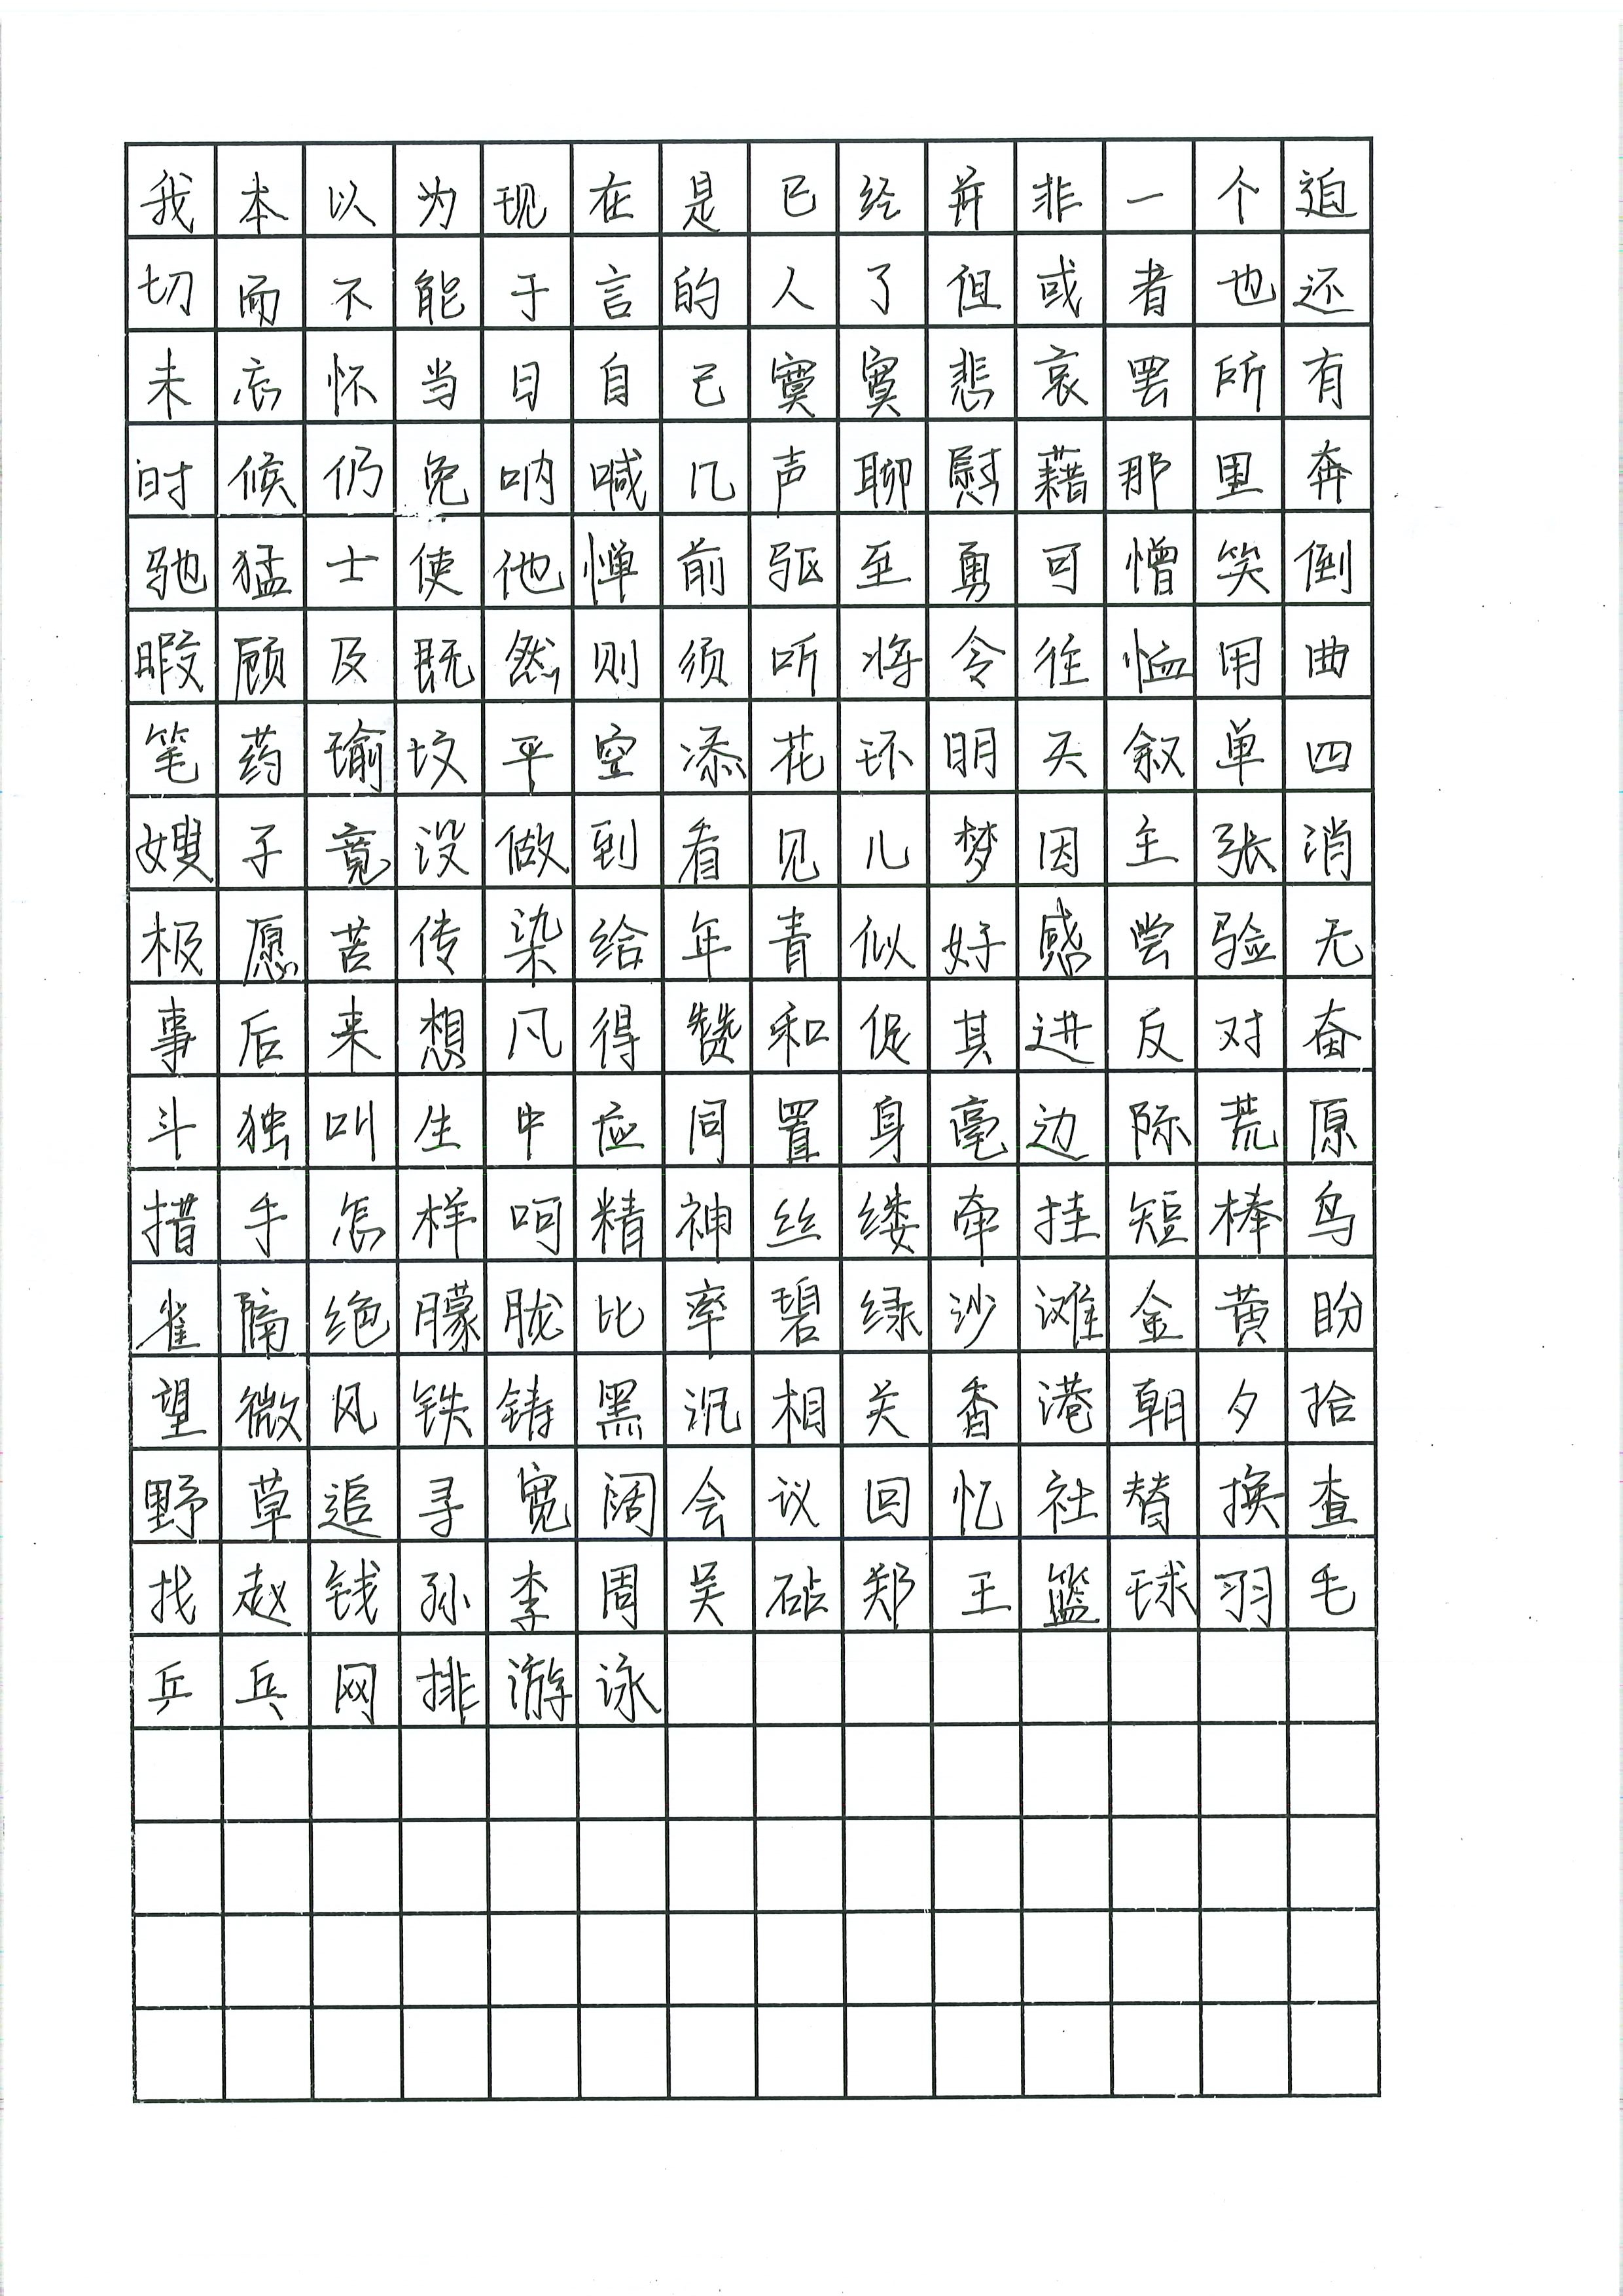 我本以为现在是已经并非一个迫
切而不能于言的人了但或者也还
未忘怀当日自己寞寞悲哀罢所有
时候仍免呐喊几声聊慰藉那里奔
驰猛士使他惮前驱至勇可憎笑倒
暇顾及既然则须听将令往恤用曲
笔药瑜坟平空添花环明天叙单四
嫂子竟没做到看见儿梦因主张消
极愿苦传染给年青似好感尝验无
事后来想凡得赞和促其进反对奋
斗独叫生中应同置身毫边际荒原
措手怎样呵精神丝缕牵挂短棒鸟
雀隔绝朦胧比率碧绿沙滩金黄盼
望微风铁铸黑沉相关香港朝夕拾
野草追寻宽阔会议回忆社替换查
找赵钱孙李周吴砧郑王篮球羽毛
乒乓网排游泳